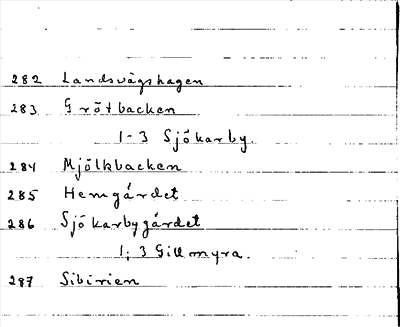 282 Landsvägshagen
283 Grötbacken
1-3 Sjökarby.
284 Mjölkbacken
285 Hemgärdet
286 Sjökarbygärdet
1; 3 Gillmyra.
287 Sibirien